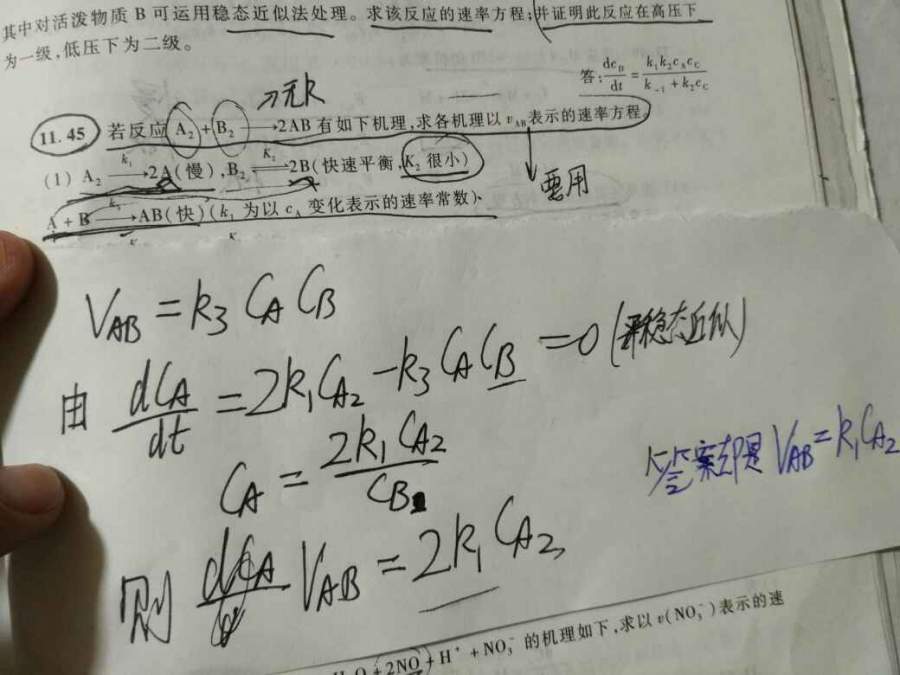 其中对活泼物质 B 可运用稳态近似法处理。求该反应的速率方程;并证明此反应在高压下
为一级,低压下为二级。
答:dc_D/dt = k₁k₂c_Ac_C/(k₋₁+k₂c_C)
11.45 若反应 A₂+B₂⟶2AB 有如下机理,求各机理以 v_AB 表示的速率方程。
(1) A₂ ⟶(k₁) 2A(慢),B₂ ⟶(K₂) 2B(快速平衡,K₂很小)
要用
A+B ⟶(k₃) AB(快)(k₁ 为以 c_A 变化表示的速率常数)
V_AB = k₃ C_A C_B
由 dC_A/dt = 2k₁C_A₂ - k₃C_AC_B = 0 (稳态近似)
C_A = 2k₁C_A₂/C_B
答案却是 V_AB = k₁C_A₂
则 V_AB = 2k₁C_A₂
H₂O+2NO+H⁺+NO₃⁻ 的机理如下,求以 v(NO₃⁻)表示的速